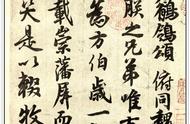 鶺鴒頌俯同魏
朕之兄弟唯有
為方伯歲一
載崇藩屏而
笑是以輟牧